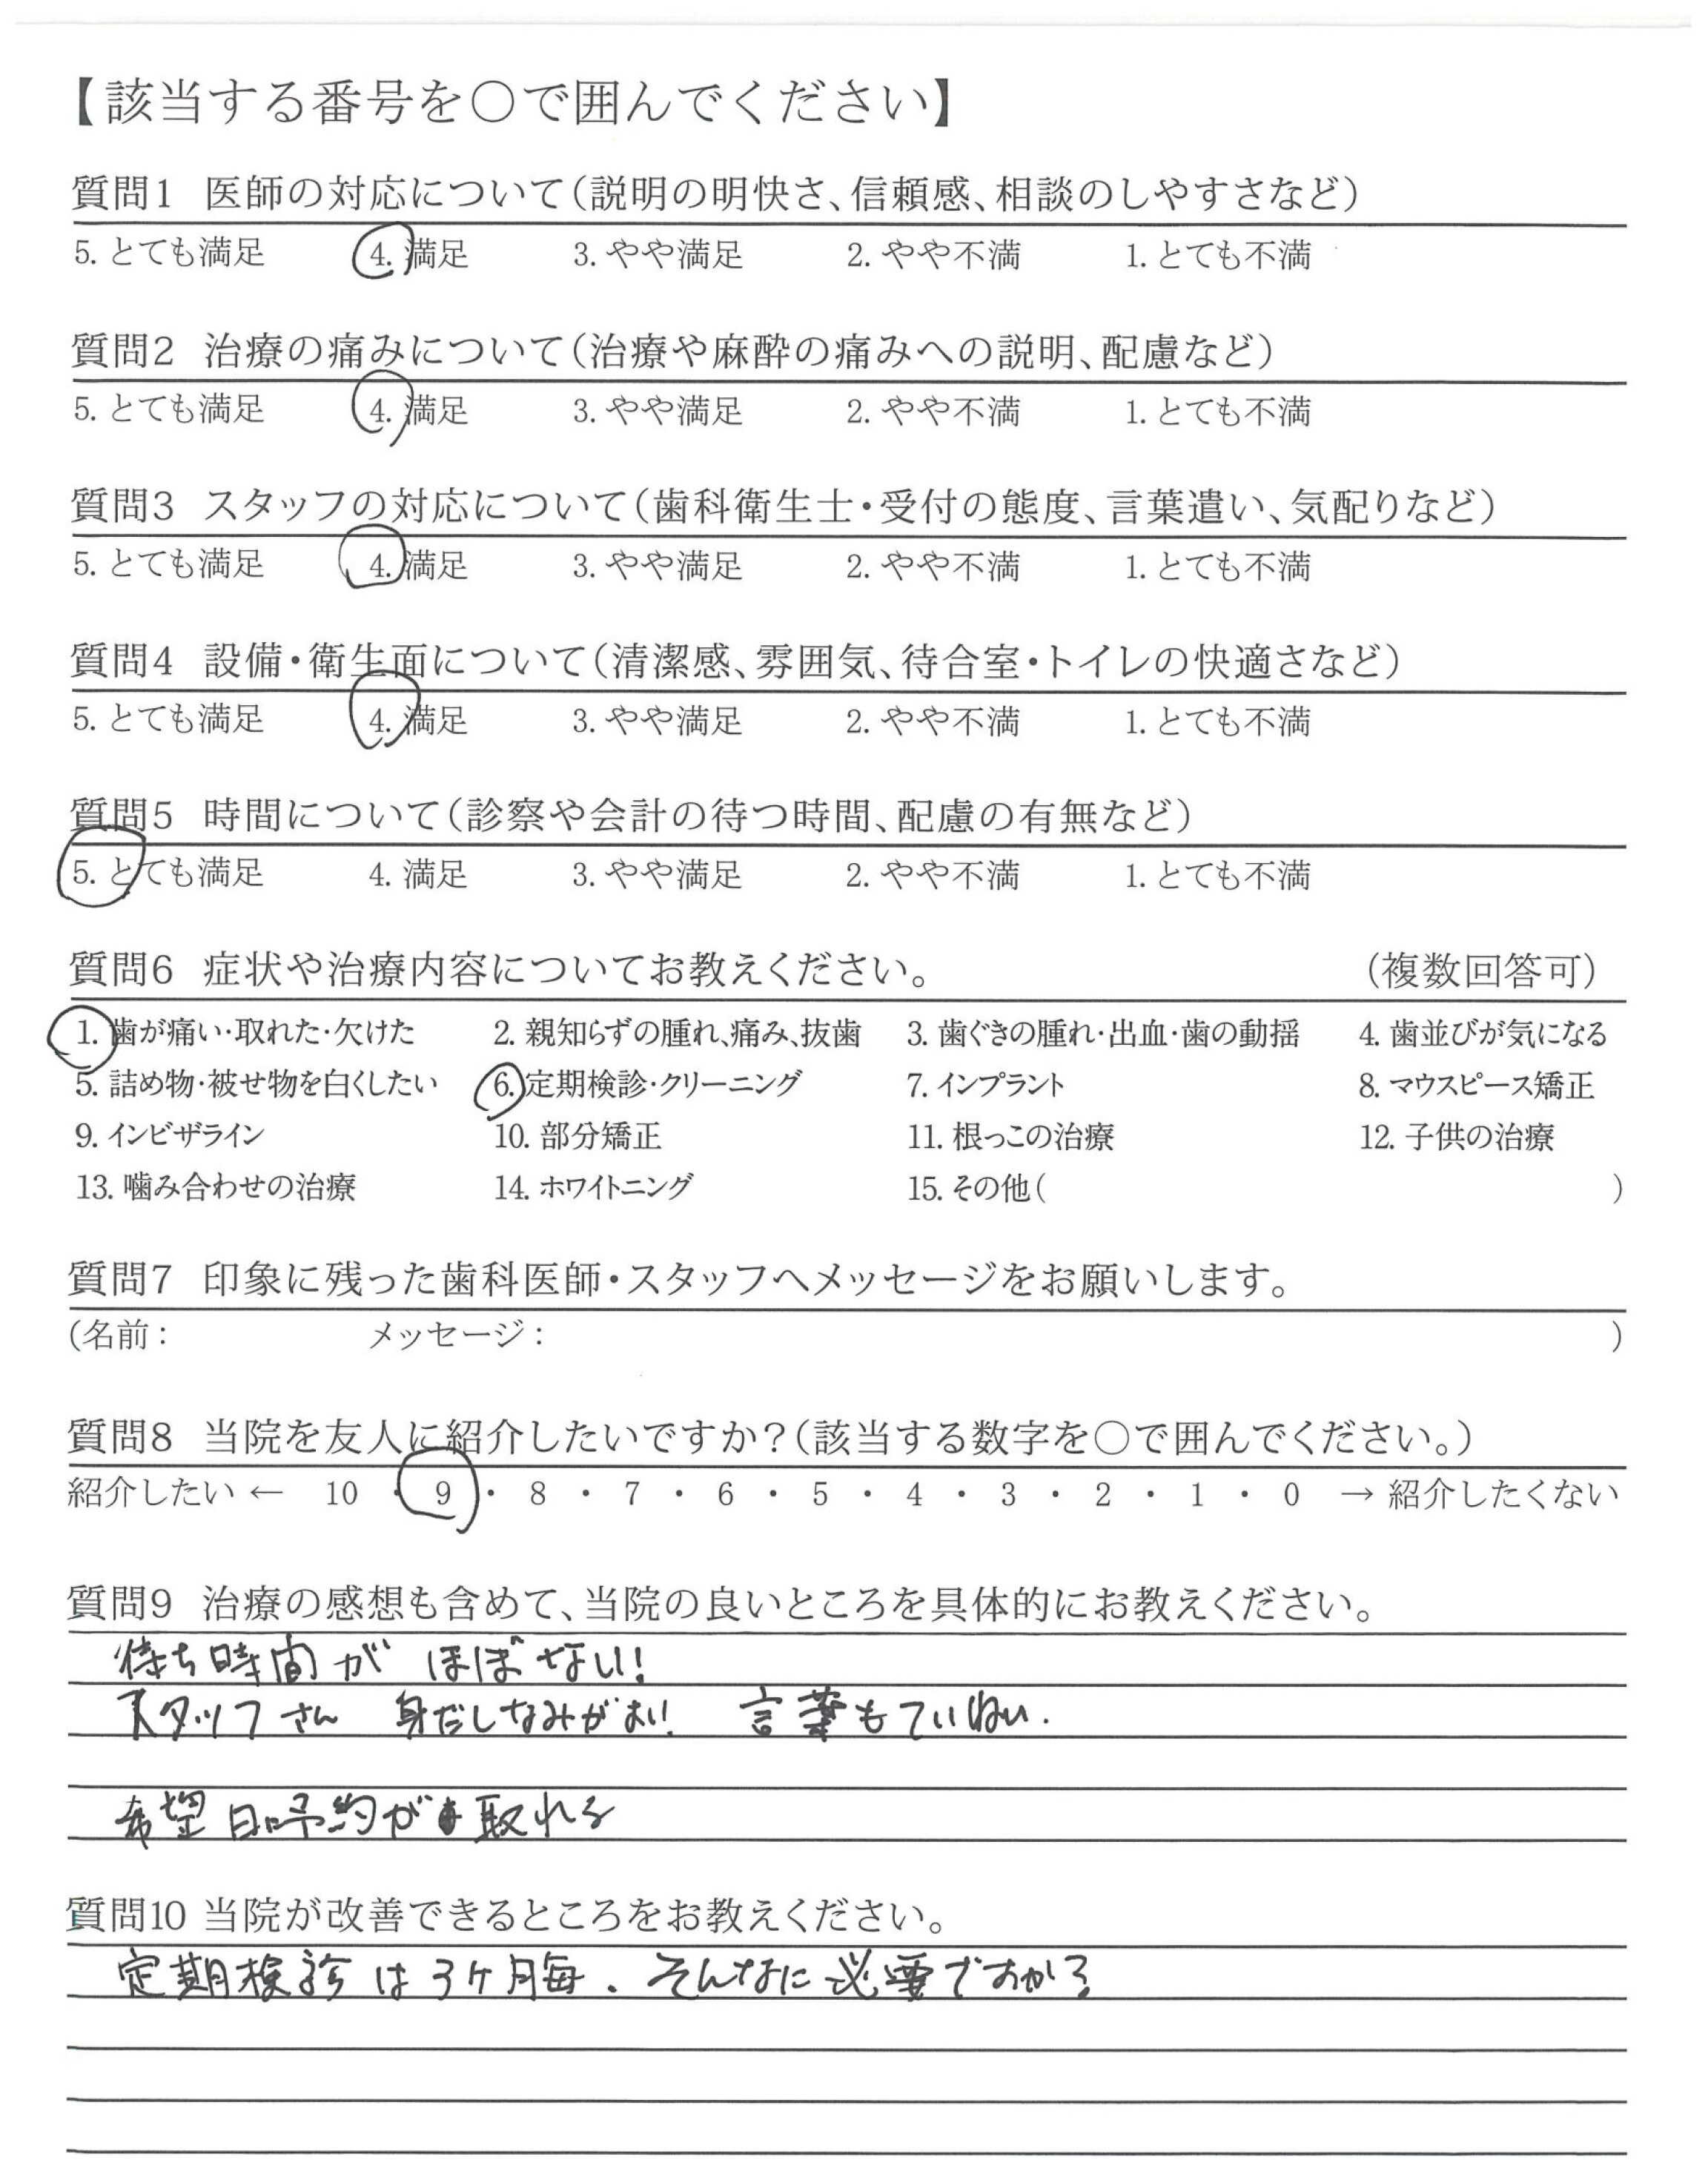 【該当する番号を○で囲んでください】
質問1 医師の対応について(説明の明快さ、信頼感、相談のしやすさなど)
5. とても満足 4. 満足 3. やや満足 2. やや不満 1. とても不満
質問2 治療の痛みについて(治療や麻酔の痛みへの説明、配慮など)
5. とても満足 4. 満足 3. やや満足 2. やや不満 1. とても不満
質問3 スタッフの対応について(歯科衛生士・受付の態度、言葉遣い、気配りなど)
5. とても満足 4. 満足 3. やや満足 2. やや不満 1. とても不満
質問4 設備・衛生面について(清潔感、雰囲気、待合室・トイレの快適さなど)
5. とても満足 4. 満足 3. やや満足 2. やや不満 1. とても不満
質問5 時間について(診察や会計の待つ時間、配慮の有無など)
5. とても満足 4. 満足 3. やや満足 2. やや不満 1. とても不満
質問6 症状や治療内容についてお教えください。 (複数回答可)
1. 歯が痛い・取れた・欠けた 2. 親知らずの腫れ、痛み、抜歯 3. 歯ぐきの腫れ・出血・歯の動揺 4. 歯並びが気になる
5. 詰め物・被せ物を白くしたい 6. 定期検診・クリーニング 7. インプラント 8. マウスピース矯正
9. インビザライン 10. 部分矯正 11. 根っこの治療 12. 子供の治療
13. 噛み合わせの治療 14. ホワイトニング 15. その他( )
質問7 印象に残った歯科医師・スタッフへメッセージをお願いします。
(名前: メッセージ: )
質問8 当院を友人に紹介したいですか?(該当する数字を○で囲んでください。)
紹介したい ← 10 ・ 9 ・ 8 ・ 7 ・ 6 ・ 5 ・ 4 ・ 3 ・ 2 ・ 1 ・ 0 → 紹介したくない
質問9 治療の感想も含めて、当院の良いところを具体的にお教えください。
待ち時間が ほぼない!
スタッフさん 身だしなみがよい! 言葉もていねい.
希望日に予約が取れる
質問10 当院が改善できるところをお教えください。
定期検診は3ケ月毎. そんなに必要ですか?